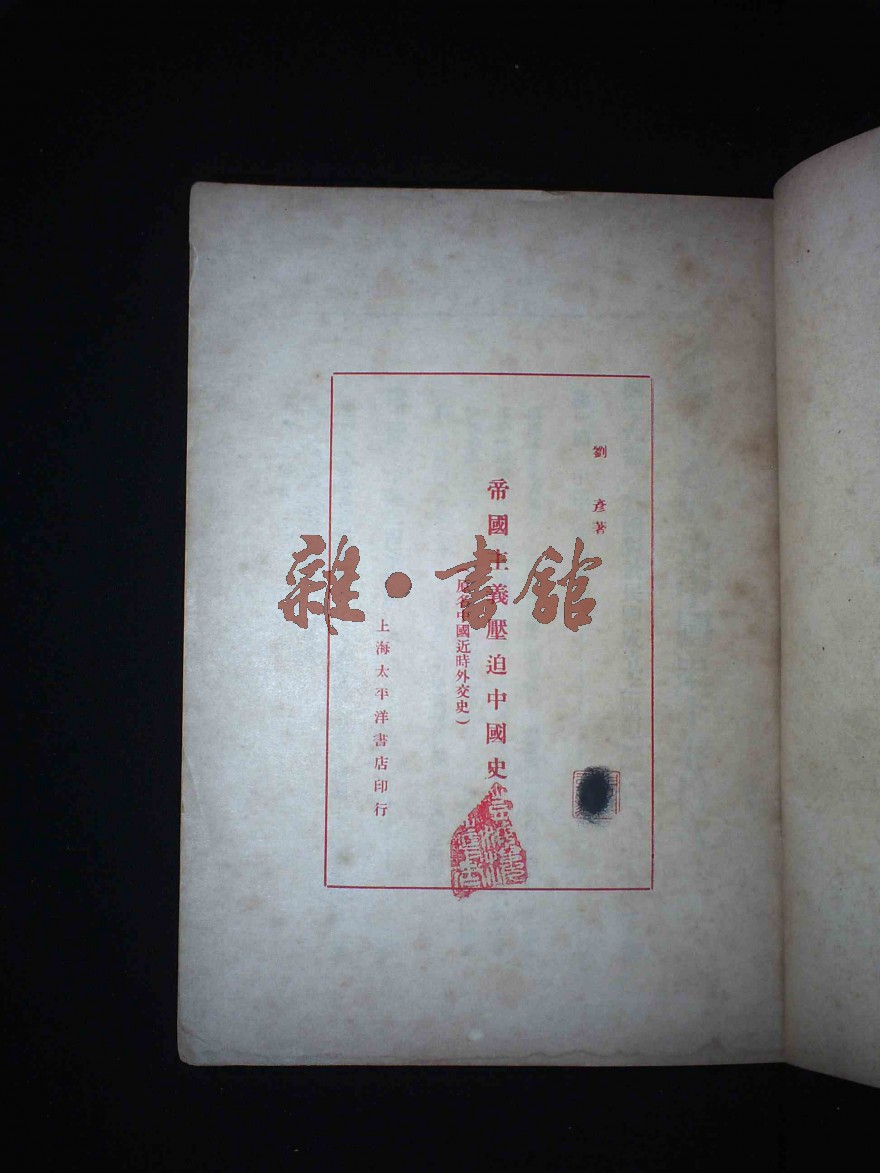 劉彥著
帝國主義壓迫中國史
原名中國近時外交史）
上海太平洋書店印行
雜•書館